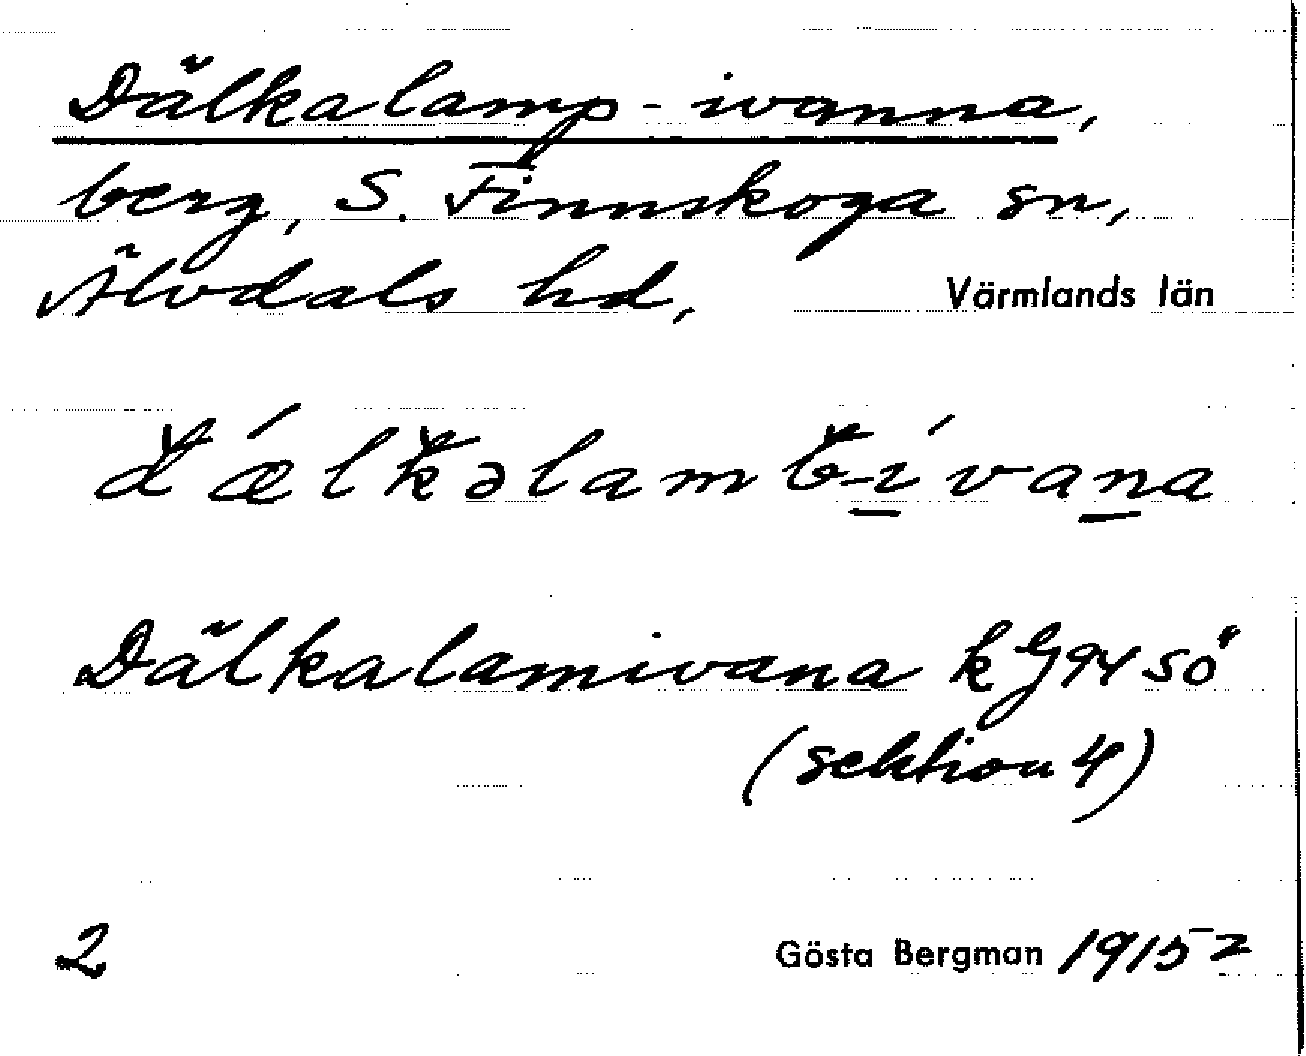 Dälkalamp-ivanna,
berg, S. Finnskoga sn,
Älvdals hd, Värmlands län
d̆ǽlk̆əlamb̆-í̱vaṉa
Dälkalamivana k G94SÖ
(sektion 4)
2 Gösta Bergman 1915